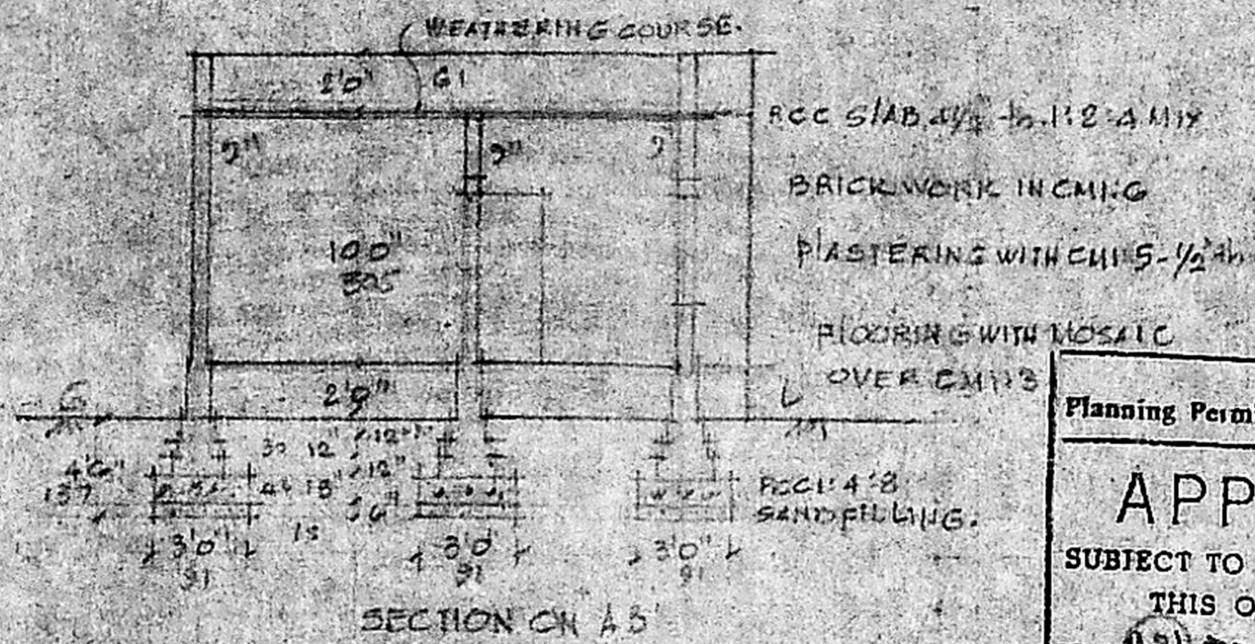 WEATHERING COURSE.
2'0" 61
RCC SLAB 4½" th. 1:2:4 MIX
9" 9" 9"
BRICK WORK IN CM1:6
10'0"
305
PLASTERING WITH CM1:5-½" th
FLOORING WITH MOSAIC
OVER CM1:3
2'9"
G
30 12" 12"
4'6" 46 18" 12"
137
15 6"
PCC1:4:8
SANDFILLING.
3'0" 3'0" 3'0"
91 91 91
SECTION ON AB
Planning Perm
APP
SUBJECT TO
THIS O